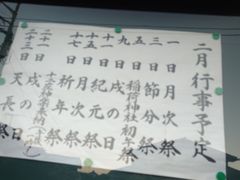 二月行事予定
一日 月次祭
三日 節分祭
五日 稲荷神社初午祭
九日 戌の日
十一日 紀元祭
十五日 月次祭
十七日 祈年祭
二十一日 戌の日
二十三日 天長祭